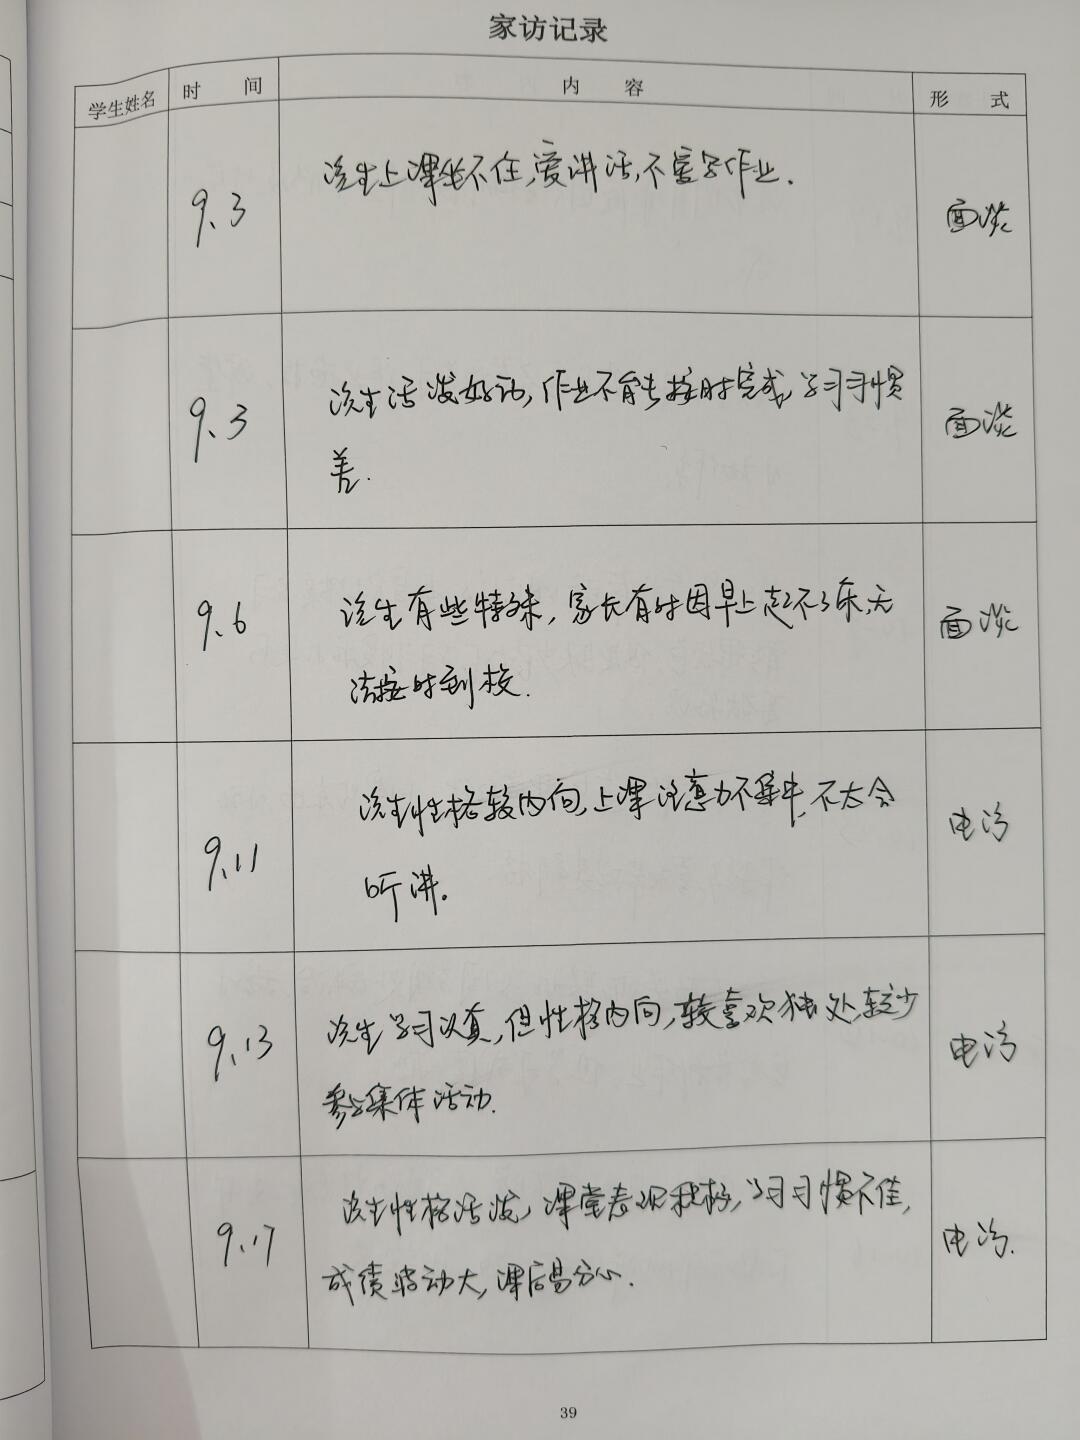 家访记录
学生姓名 时间 内容 形式
9.3 该生上课坐不住,爱讲话,不爱写作业. 面谈
9.3 该生活泼好动,作业不能按时完成,学习习惯 面谈
差.
9.6 该生有些特殊,家长有时因早上起不了床,无 面谈
法按时到校.
9.11 该生性格较内向,上课注意力不集中,不太会 电访
听讲。
9.13 该生学习认真,但性格内向,较喜欢独处,较少 电访
参与集体活动.
9.17 该生性格活泼,课堂表现积极,学习习惯不佳, 电访.
成绩波动大,课后易分心.
39